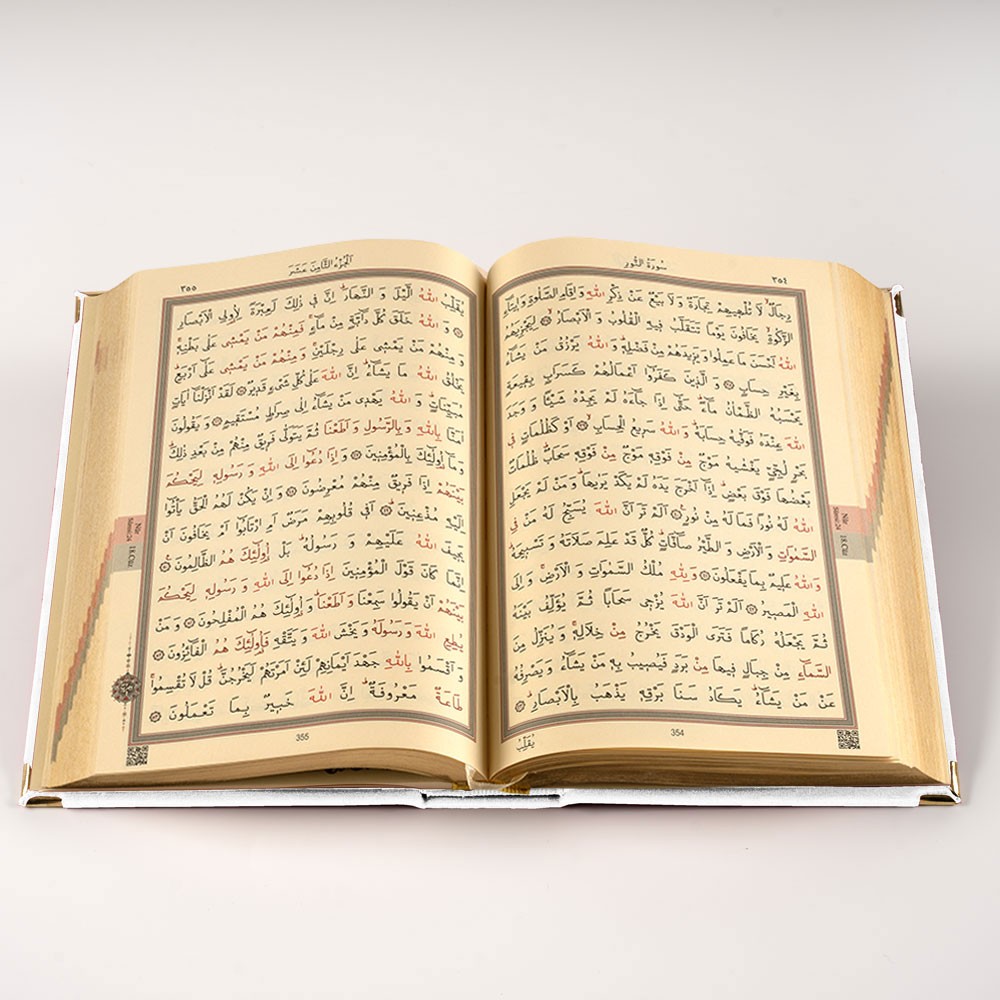 سُورَةُ النُّورِ ٣٥٤
رِجَالٌۙ لَا تُلْهِيهِمْ تِجَارَةٌ وَلَا بَيْعٌ عَنْ ذِكْرِ اللّٰهِ وَاِقَامِ الصَّلٰوةِ وَاِيتَٓاءِ
الزَّكٰوةِۙ يَخَافُونَ يَوْمًا تَتَقَلَّبُ فِيهِ الْقُلُوبُ وَالْاَبْصَارُۙ ۞ لِيَجْزِيَهُمُ
اللّٰهُ اَحْسَنَ مَا عَمِلُوا وَيَزِيدَهُمْ مِنْ فَضْلِهِۜ وَاللّٰهُ يَرْزُقُ مَنْ يَشَٓاءُ
بِغَيْرِ حِسَابٍ ۞ وَالَّذِينَ كَفَرُٓوا اَعْمَالُهُمْ كَسَرَابٍ بِقِيعَةٍ
يَحْسَبُهُ الظَّمْاٰنُ مَٓاءًۜ حَتّٰٓى اِذَا جَٓاءَهُ لَمْ يَجِدْهُ شَيْـًٔا وَوَجَدَ
اللّٰهَ عِنْدَهُ فَوَفّٰيهُ حِسَابَهُۜ وَاللّٰهُ سَرِيعُ الْحِسَابِۙ ۞ اَوْ كَظُلُمَاتٍ فِي
بَحْرٍ لُجِّيٍّ يَغْشٰيهُ مَوْجٌ مِنْ فَوْقِهِ مَوْجٌ مِنْ فَوْقِهِ سَحَابٌۜ ظُلُمَاتٌ
بَعْضُهَا فَوْقَ بَعْضٍۜ اِذَٓا اَخْرَجَ يَدَهُ لَمْ يَكَدْ يَرٰيهَاۜ وَمَنْ لَمْ يَجْعَلِ
اللّٰهُ لَهُ نُورًا فَمَا لَهُ مِنْ نُورٍ۟ ۞ اَلَمْ تَرَ اَنَّ اللّٰهَ يُسَبِّحُ لَهُ مَنْ فِي
السَّمٰوَاتِ وَالْاَرْضِ وَالطَّيْرُ صَٓافَّاتٍۜ كُلٌّ قَدْ عَلِمَ صَلَاتَهُ وَتَسْبِيحَهُۜ
وَاللّٰهُ عَلِيمٌ بِمَا يَفْعَلُونَ ۞ وَلِلّٰهِ مُلْكُ السَّمٰوَاتِ وَالْاَرْضِۚ وَاِلَى
اللّٰهِ الْمَصِيرُ ۞ اَلَمْ تَرَ اَنَّ اللّٰهَ يُزْجِي سَحَابًا ثُمَّ يُؤَلِّفُ بَيْنَهُ
ثُمَّ يَجْعَلُهُ رُكَامًا فَتَرَى الْوَدْقَ يَخْرُجُ مِنْ خِلَالِهِۚ وَيُنَزِّلُ مِنَ
السَّمَٓاءِ مِنْ جِبَالٍ فِيهَا مِنْ بَرَدٍ فَيُصِيبُ بِهِ مَنْ يَشَٓاءُ وَيَصْرِفُهُ
عَنْ مَنْ يَشَٓاءُۜ يَكَادُ سَنَا بَرْقِهِ يَذْهَبُ بِالْاَبْصَارِۜ ۞
يُقَلِّبُ
354
Nûr
Sûresi:24
18.Cüz
اَلْجُزْءُ الثَّامِنَ عَشَرَ ٣٥٥
يُقَلِّبُ اللّٰهُ الَّيْلَ وَالنَّهَارَۜ اِنَّ فِي ذٰلِكَ لَعِبْرَةً لِاُولِي الْاَبْصَارِ
۞ وَاللّٰهُ خَلَقَ كُلَّ دَٓابَّةٍ مِنْ مَٓاءٍۚ فَمِنْهُمْ مَنْ يَمْشِي عَلٰى بَطْنِهِۚ
وَمِنْهُمْ مَنْ يَمْشِي عَلٰى رِجْلَيْنِۚ وَمِنْهُمْ مَنْ يَمْشِي عَلٰٓى اَرْبَعٍۜ
يَخْلُقُ اللّٰهُ مَا يَشَٓاءُۜ اِنَّ اللّٰهَ عَلٰى كُلِّ شَيْءٍ قَدِيرٌ ۞ لَقَدْ اَنْزَلْنَٓا اٰيَاتٍ
مُبَيِّنَاتٍۜ وَاللّٰهُ يَهْدِي مَنْ يَشَٓاءُ اِلٰى صِرَاطٍ مُسْتَقِيمٍ ۞ وَيَقُولُونَ
اٰمَنَّا بِاللّٰهِ وَبِالرَّسُولِ وَاَطَعْنَا ثُمَّ يَتَوَلّٰى فَرِيقٌ مِنْهُمْ مِنْ بَعْدِ ذٰلِكَۜ
وَمَٓا اُو۬لٰٓئِكَ بِالْمُؤْمِنِينَ ۞ وَاِذَا دُعُٓوا اِلَى اللّٰهِ وَرَسُولِهِ لِيَحْكُمَ
بَيْنَهُمْ اِذَا فَرِيقٌ مِنْهُمْ مُعْرِضُونَ ۞ وَاِنْ يَكُنْ لَهُمُ الْحَقُّ يَأْتُٓوا
اِلَيْهِ مُذْعِنِينَۜ ۞ اَفِي قُلُوبِهِمْ مَرَضٌ اَمِ ارْتَابُٓوا اَمْ يَخَافُونَ اَنْ
يَحِيفَ اللّٰهُ عَلَيْهِمْ وَرَسُولُهُۜ بَلْ اُو۬لٰٓئِكَ هُمُ الظَّالِمُونَ۟ ۞
اِنَّمَا كَانَ قَوْلَ الْمُؤْمِنِينَ اِذَا دُعُٓوا اِلَى اللّٰهِ وَرَسُولِهِ لِيَحْكُمَ
بَيْنَهُمْ اَنْ يَقُولُوا سَمِعْنَا وَاَطَعْنَاۜ وَاُو۬لٰٓئِكَ هُمُ الْمُفْلِحُونَ ۞ وَمَنْ
يُطِعِ اللّٰهَ وَرَسُولَهُ وَيَخْشَ اللّٰهَ وَيَتَّقْهِ فَاُو۬لٰٓئِكَ هُمُ الْفَٓائِزُونَ ۞
وَاَقْسَمُوا بِاللّٰهِ جَهْدَ اَيْمَانِهِمْ لَئِنْ اَمَرْتَهُمْ لَيَخْرُجُنَّۜ قُلْ لَا تُقْسِمُواۚ
طَاعَةٌ مَعْرُوفَةٌۜ اِنَّ اللّٰهَ خَبِيرٌ بِمَا تَعْمَلُونَ ۞
355
Nûr
Sûresi:24
18.Cüz